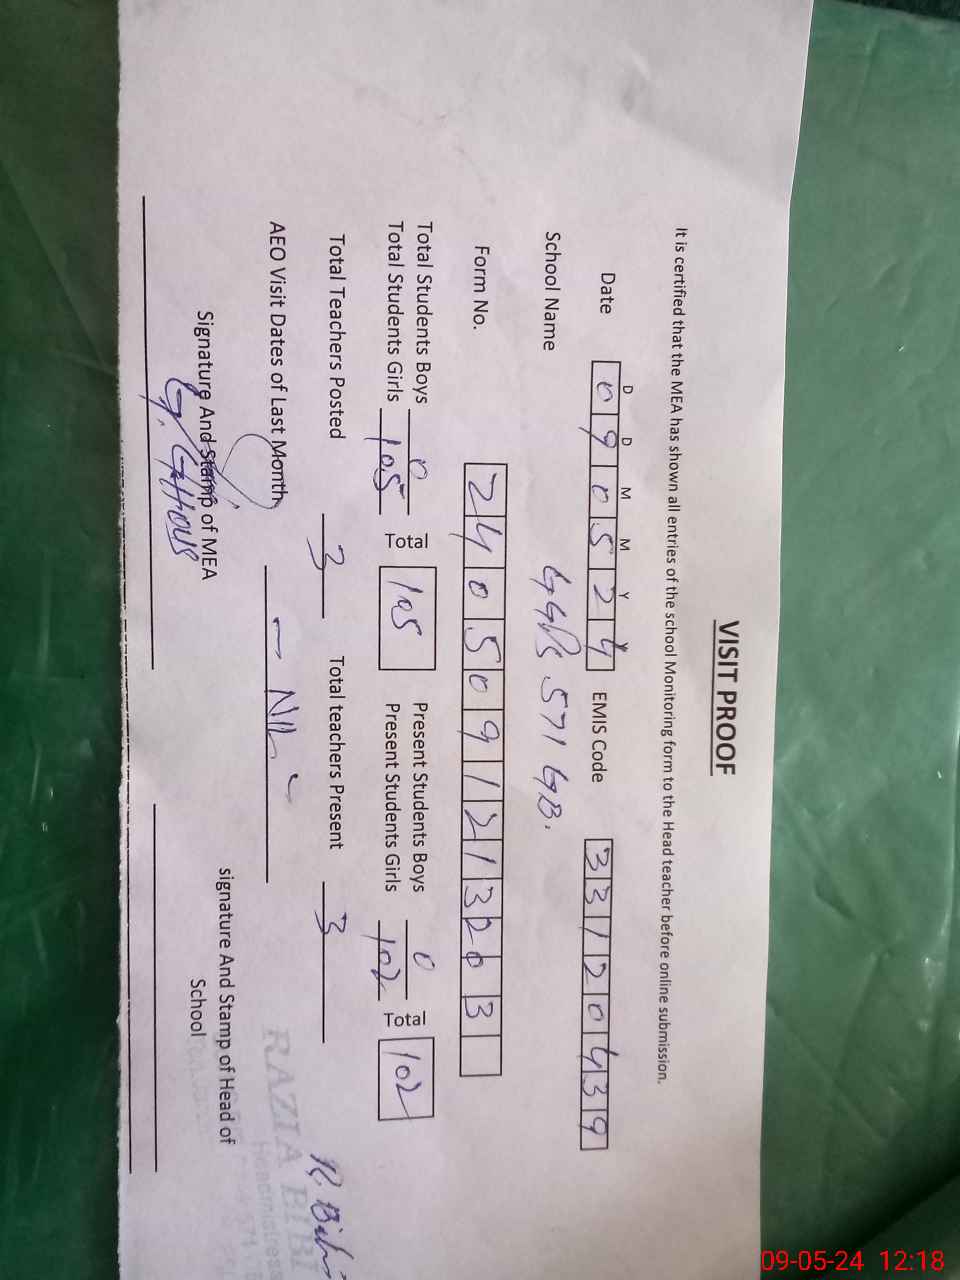 VISIT PROOF
It is certified that the MEA has shown all entries of the school Monitoring form to the Head teacher before online submission.
D D M M Y
Date 0 9 0 5 2 4 EMIS Code 3 3 1 2 0 4 3 9
School Name GGPS 571 GB.
Form No. 2 4 0 5 0 9 1 2 1 3 2 0 3
Total Students Boys 0 Total 105 Present Students Boys 0 Total 102
Total Students Girls 105 Present Students Girls 102
Total Teachers Posted 3 Total teachers Present 3
AEO Visit Dates of Last Month — Nil —
R. Bibi
RAZIA BIBI
Headmistress
571
Signature And Stamp of MEA signature And Stamp of Head of
School
G. Ghous
09-05-24 12:18